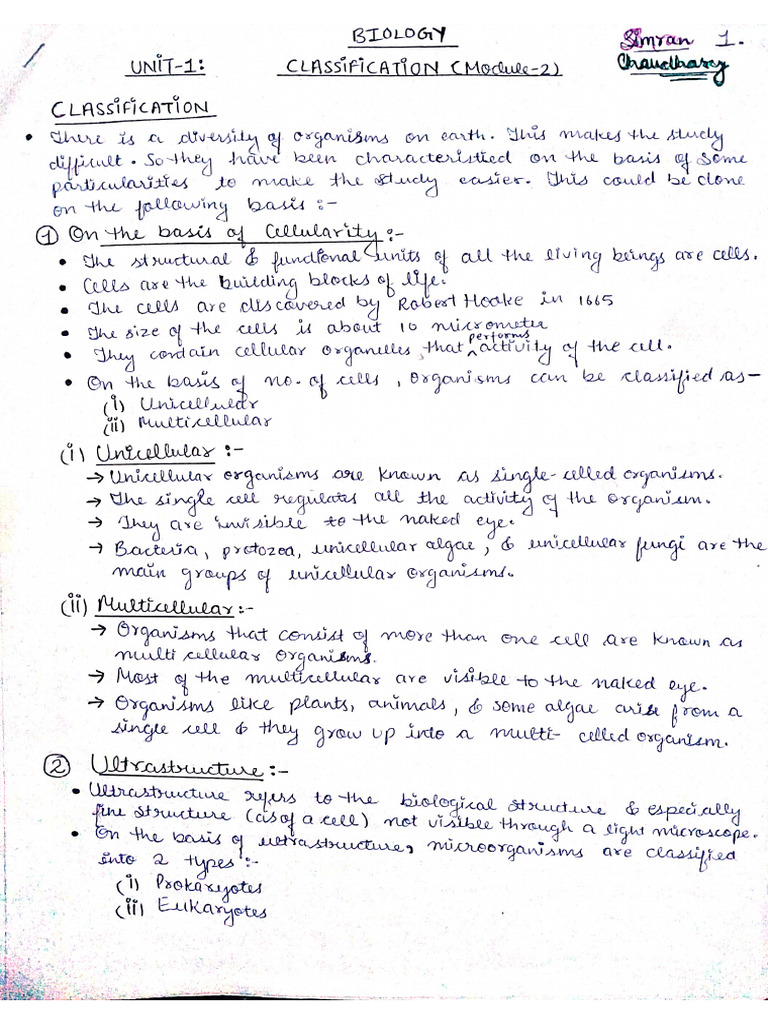 BIOLOGY
Simran 1.
Chaudharey
UNIT-1: CLASSIFICATION (Module-2)
CLASSIFICATION
• There is a diversity of organisms on earth. This makes the study
difficult. So they have been characteristied on the basis of some
particularities to make the study easier. This could be done
on the following basis :-
① On the basis of Cellularity :-
• The structural & functional units of all the living beings are cells.
• Cells are the building blocks of life.
• The cells are discovered by Robert Hooke in 1665
• The size of the cells is about 10 micrometer
• They contain cellular organelles, that performs activity of the cell.
• On the basis of no. of cells, organisms can be classified as-
(i) Unicellular
(ii) Multicellular
(i) Unicellular :-
→ Unicellular organisms are known as single-celled organisms.
→ The single cell regulates all the activity of the organism.
→ They are invisible to the naked eye.
→ Bacteria, protozoa, unicellular algae, & unicellular fungi are the
main groups of unicellular organisms.
(ii) Multicellular :-
→ Organisms that consist of more than one cell are known as
multi cellular organisms.
→ Most of the multicellular are visible to the naked eye.
→ Organisms like plants, animals, & some algae arise from a
single cell & they grow up into a multi- celled organism.
② Ultrastructure :-
• Ultrastructure refers to the biological structure & especially
fine structure (as of a cell) not visible through a light microscope.
• On the basis of ultrastructure, microorganisms are classified
into 2 types :-
(i) Prokaryotes
(ii) Eukaryotes